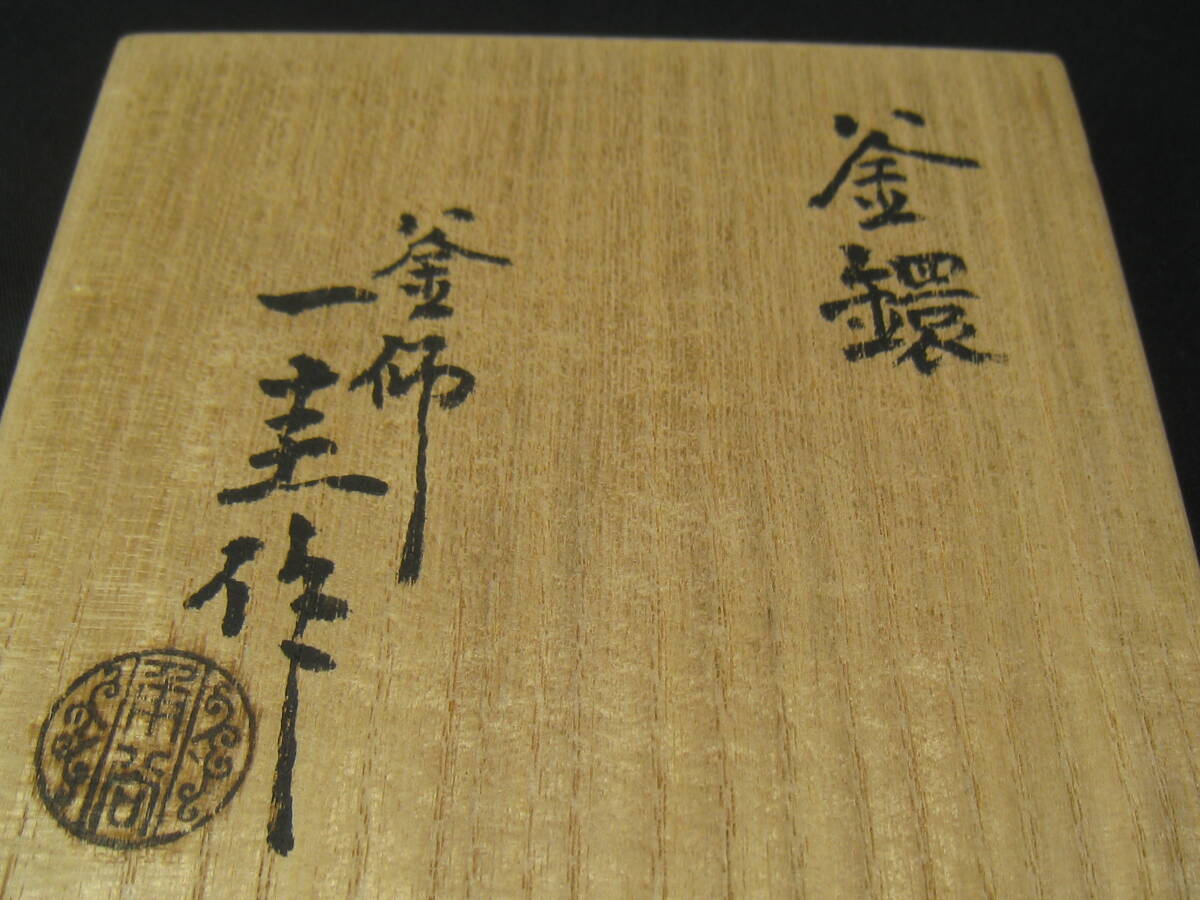 釜鐶
釜師
一圭作